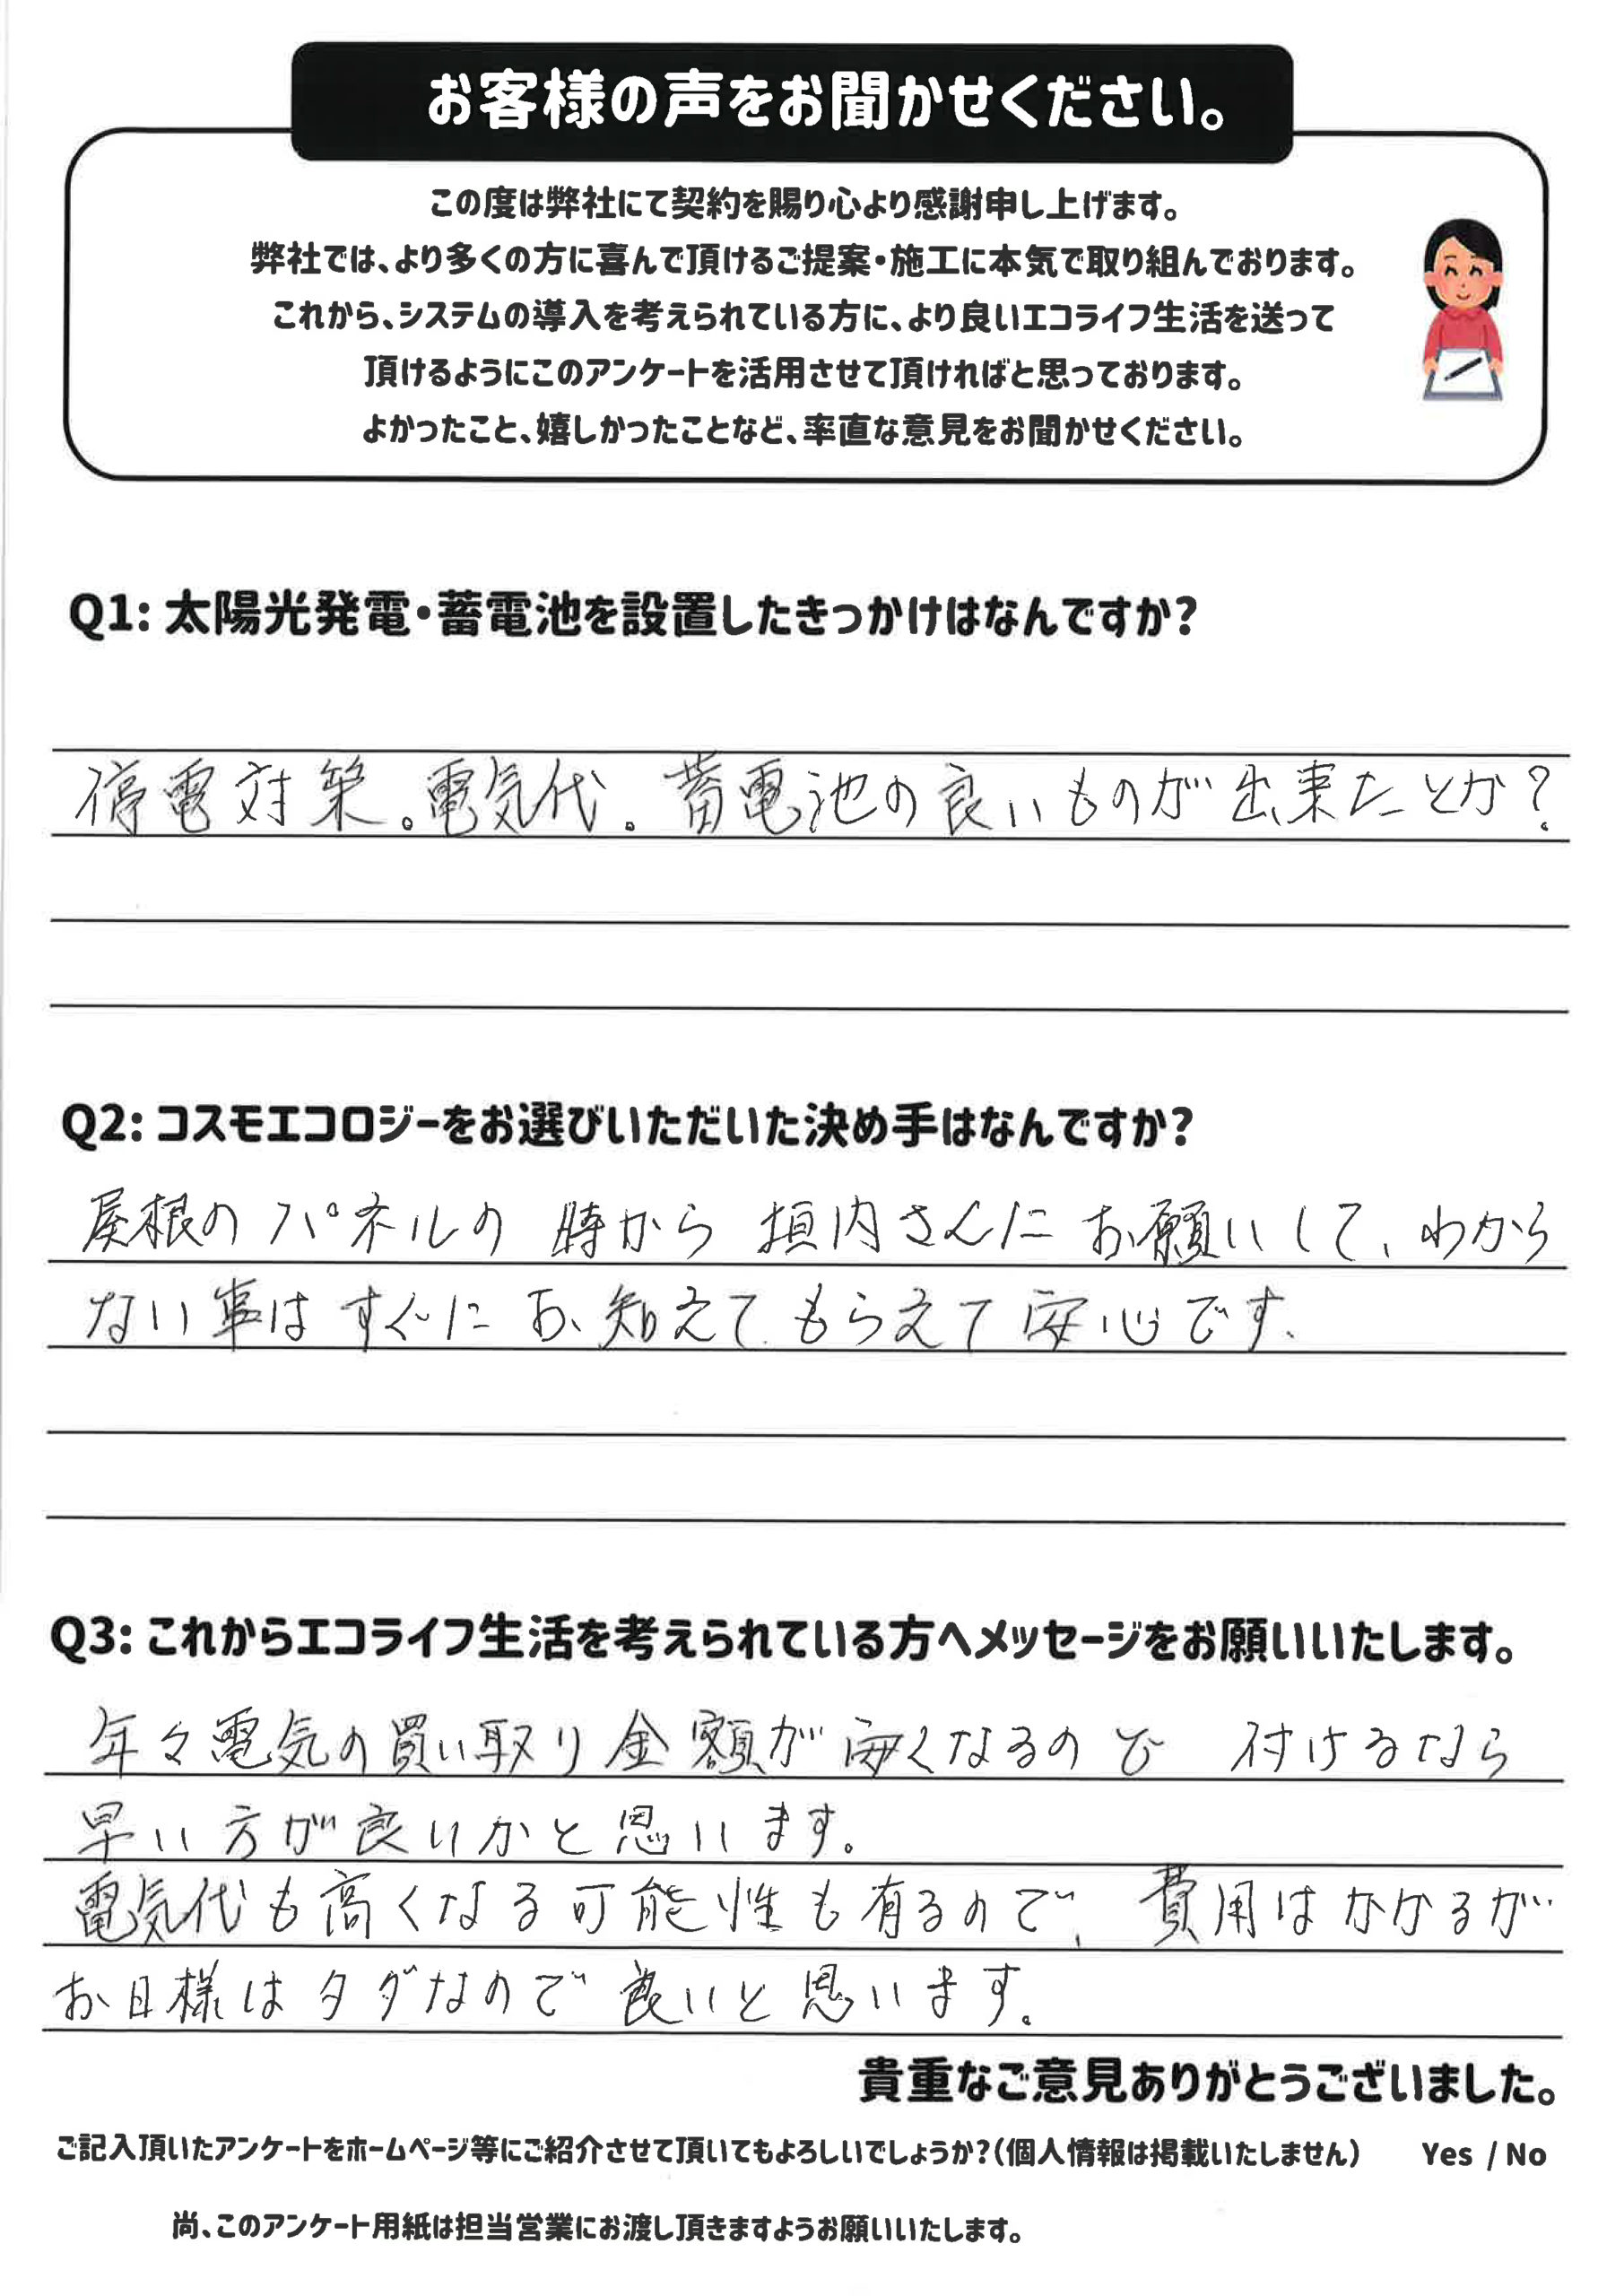 お客様の声をお聞かせください。
この度は弊社にて契約を賜り心より感謝申し上げます。
弊社では、より多くの方に喜んで頂けるご提案・施工に本気で取り組んでおります。
これから、システムの導入を考えられている方に、より良いエコライフ生活を送って
頂けるようにこのアンケートを活用させて頂ければと思っております。
よかったこと、嬉しかったことなど、率直な意見をお聞かせください。
Q1: 太陽光発電・蓄電池を設置したきっかけはなんですか?
停電対策。電気代。蓄電池の良いものが出来たとか?
Q2: コスモエコロジーをお選びいただいた決め手はなんですか?
屋根のパネルの時から垣内さんにお願いして、わから
ない事はすぐにお知えてもらえて安心です、
Q3: これからエコライフ生活を考えられている方へメッセージをお願いいたします。
年々電気の買い取り金額が安くなるので 付けるなら
早い方が良いかと思います。
電気代も高くなる可能性も有るので、費用はかかるが
お日様はタダなので良いと思います。
貴重なご意見ありがとうございました。
ご記入頂いたアンケートをホームページ等にご紹介させて頂いてもよろしいでしょうか?(個人情報は掲載いたしません) Yes / No
尚、このアンケート用紙は担当営業にお渡し頂きますようお願いいたします。